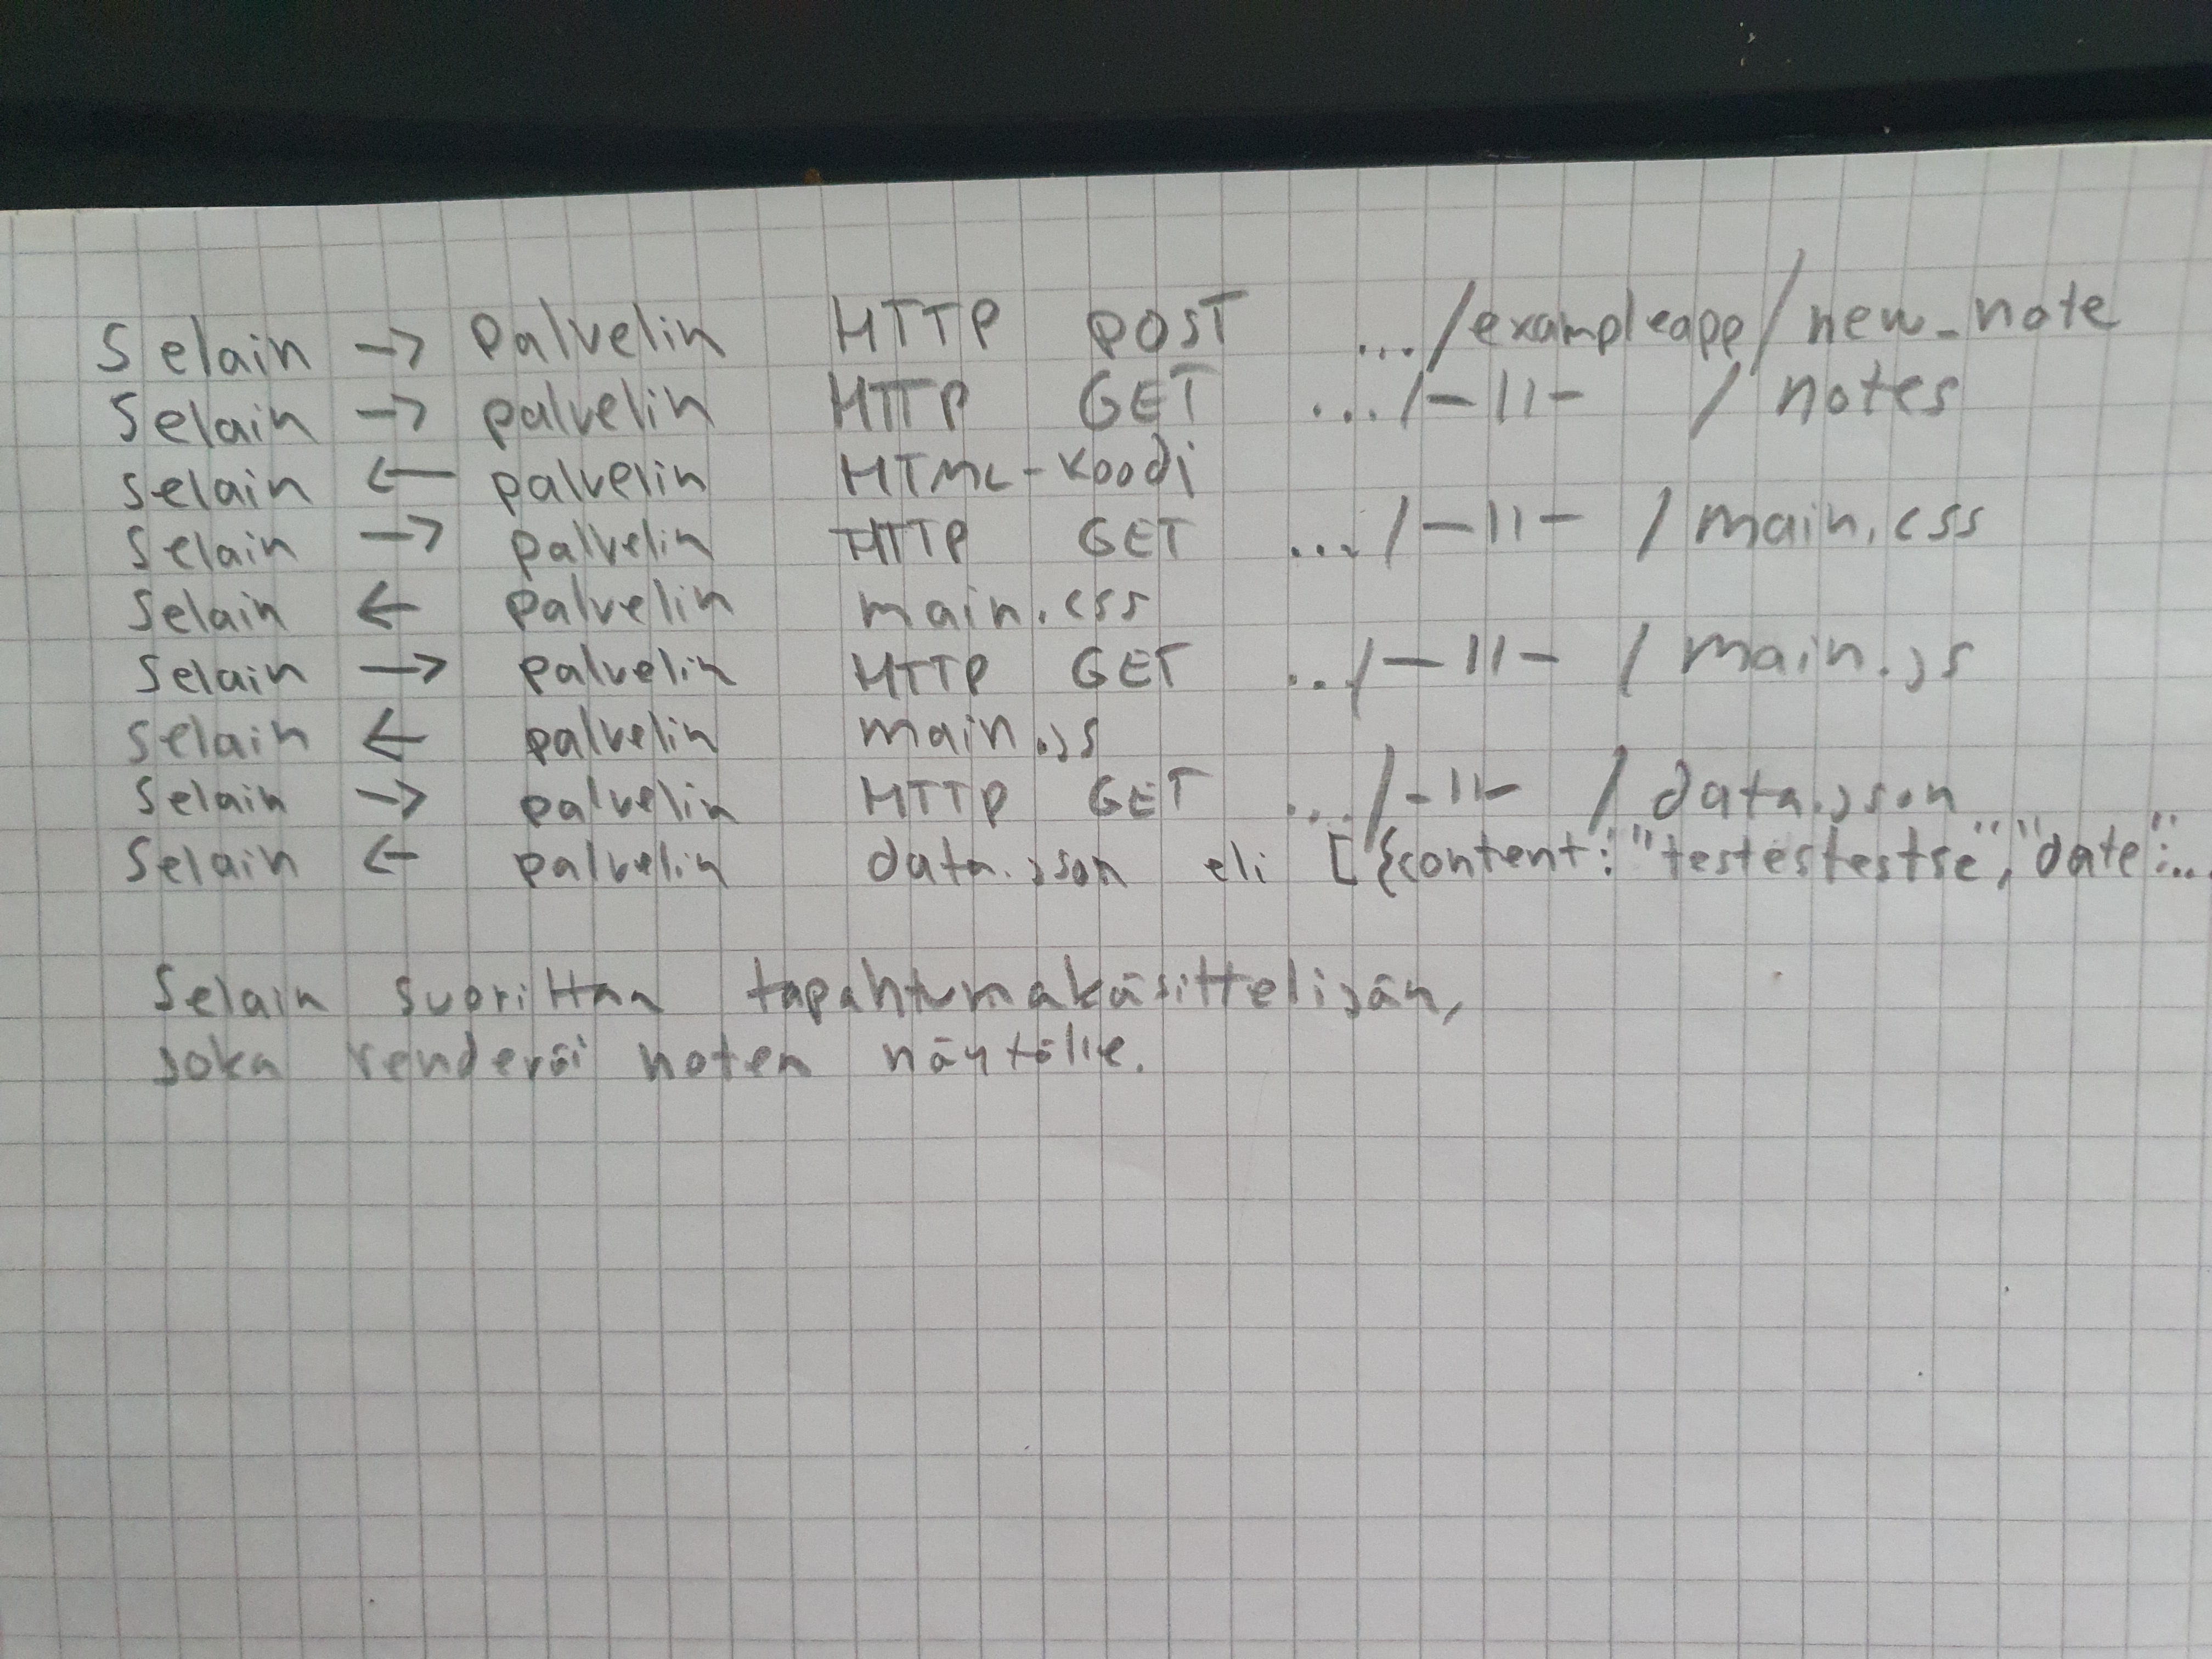 Selain → palvelin HTTP POST .../exampleapp/new_note
Selain → palvelin HTTP GET .../-11- / notes
selain ← palvelin HTML-koodi
Selain → palvelin HTTP GET .../-11- / main.css
Selain ← palvelin main.css
Selain → palvelin HTTP GET .../-11- / main.js
Selain ← palvelin main.js
Selain → palvelin HTTP GET .../-11- / data.json
Selain ← palvelin data.json eli [{content:"testestestse","date":...
Selain suorittaa tapahtumakäsittelijän,
joka renderöi noten näytölle.